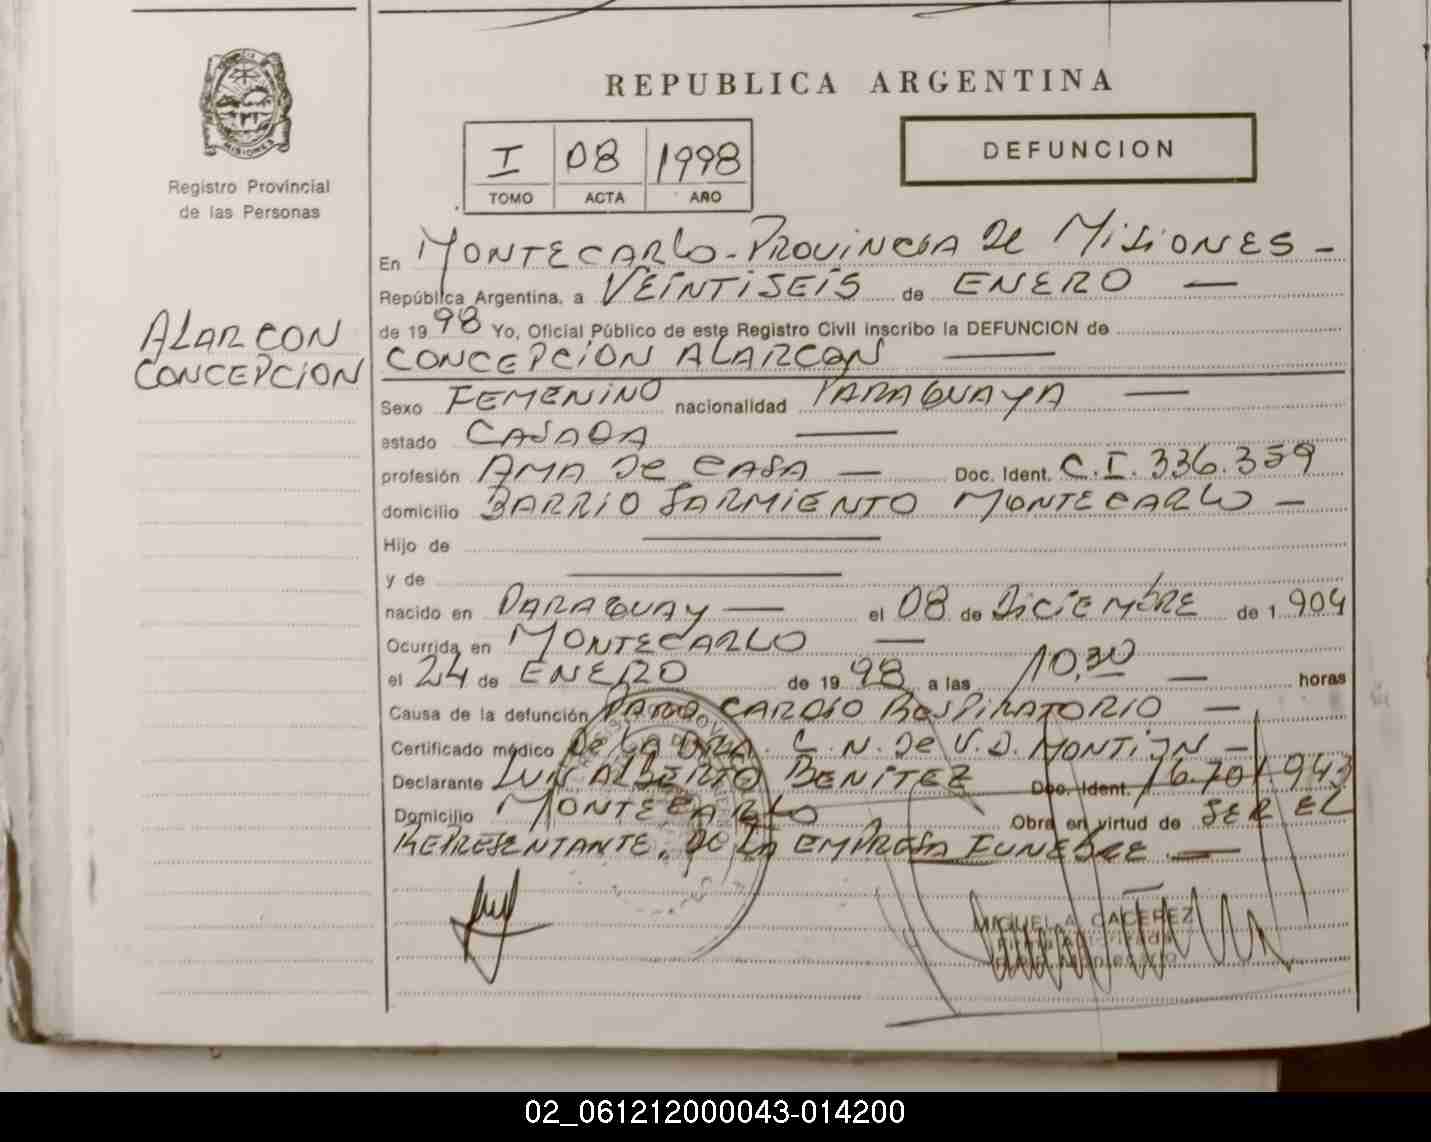 MISIONES
Registro Provincial
de las Personas
ALARCON
CONCEPCION
REPUBLICA ARGENTINA
I 08 1998
TOMO ACTA AÑO
DEFUNCION
En MONTECARLO - PROVINCIA DE MISIONES -
República Argentina, a VEINTISEIS de ENERO —
de 1998 Yo, Oficial Público de este Registro Civil inscribo la DEFUNCION de
CONCEPCION ALARCON —
Sexo FEMENINO nacionalidad PARAGUAYA —
estado CASADA —
profesión AMA DE CASA — Doc. Ident. C.I. 336.359
domicilio BARRIO SARMIENTO MONTECARLO -
Hijo de —
y de —
nacido en PARAGUAY — el 08 de DICIEMBRE de 1.904
Ocurrida en MONTECARLO —
el 24 de ENERO de 1998 a las 10,30 — horas
Causa de la defunción PARO CARDIO RESPIRATORIO —
Certificado médico DE LA DRA. C. N. DE V. D. MONTIJN -
Declarante LUIS ALBERTO BENITEZ Doc. Ident. 16.701.943
Domicilio MONTECARLO Obra en virtud de SER EL
REPRESENTANTE. DE LA EMPRESA FUNEBRE. —
MIGUEL A. CACEREZ
02_061212000043-014200